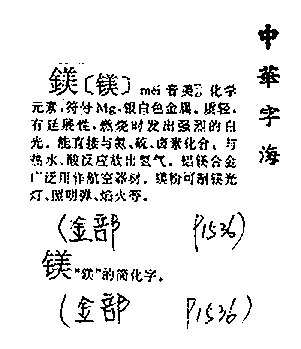 中華字海
鎂〔镁〕 měi 音美 化学
元素,符号Mg。银白色金属。质轻,
有延展性,燃烧时发出强烈的白
光。能直接与氮、硫、卤素化合,与
热水、酸反应放出氢气。铝镁合金
广泛用作航空器材。镁粉可制镁光
灯、照明弹、焰火等。
(金部 P1536)
镁 "鎂"的简化字。
(金部 P1536)